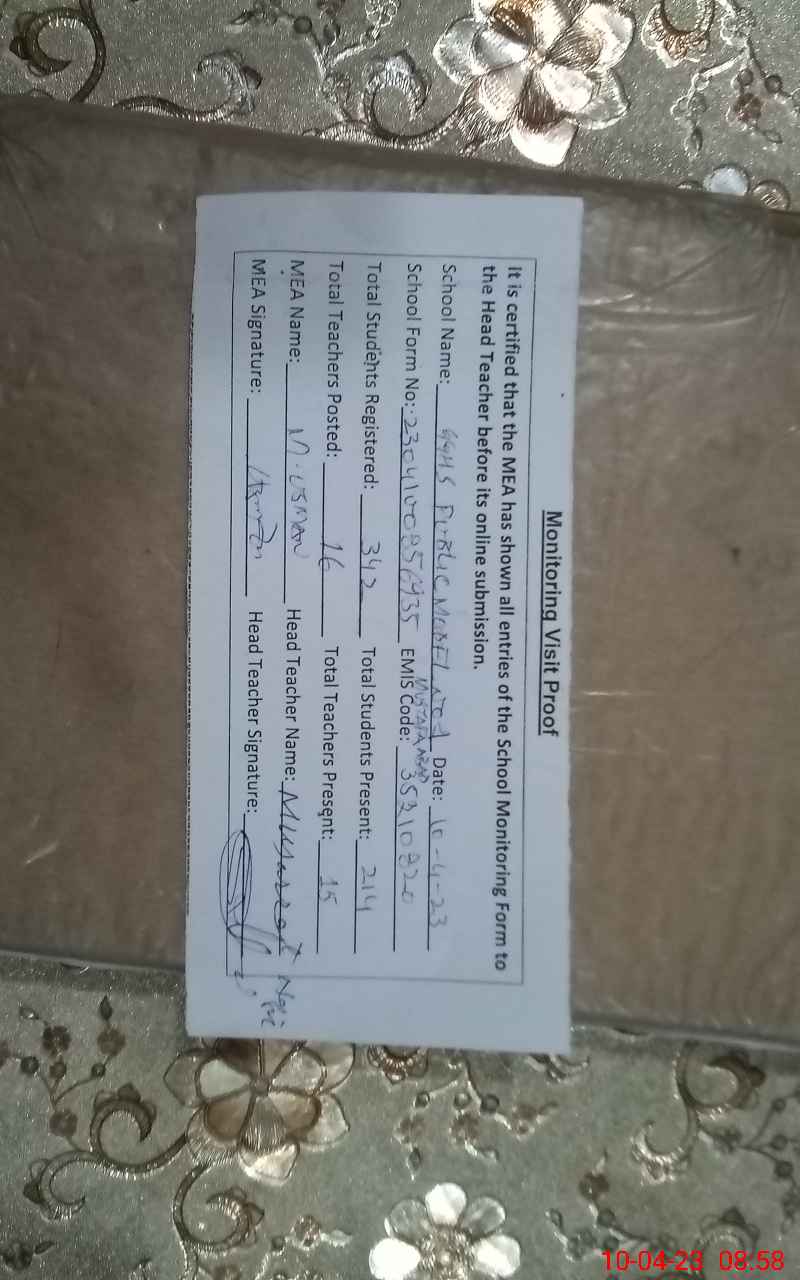 Monitoring Visit Proof
It is certified that the MEA has shown all entries of the School Monitoring Form to
the Head Teacher before its online submission.
School Name: GGHS PUBLIC MODEL Date: 10-4-23
MUSTAFABAD
School Form No: EMIS Code: 35210820
Total Students Registered: 342 Total Students Present: 214
Total Teachers Posted: 16 Total Teachers Present: 15
MEA Name: M. USMAN Head Teacher Name: Musarrat
MEA Signature: Head Teacher Signature:
10-04-23 08:58